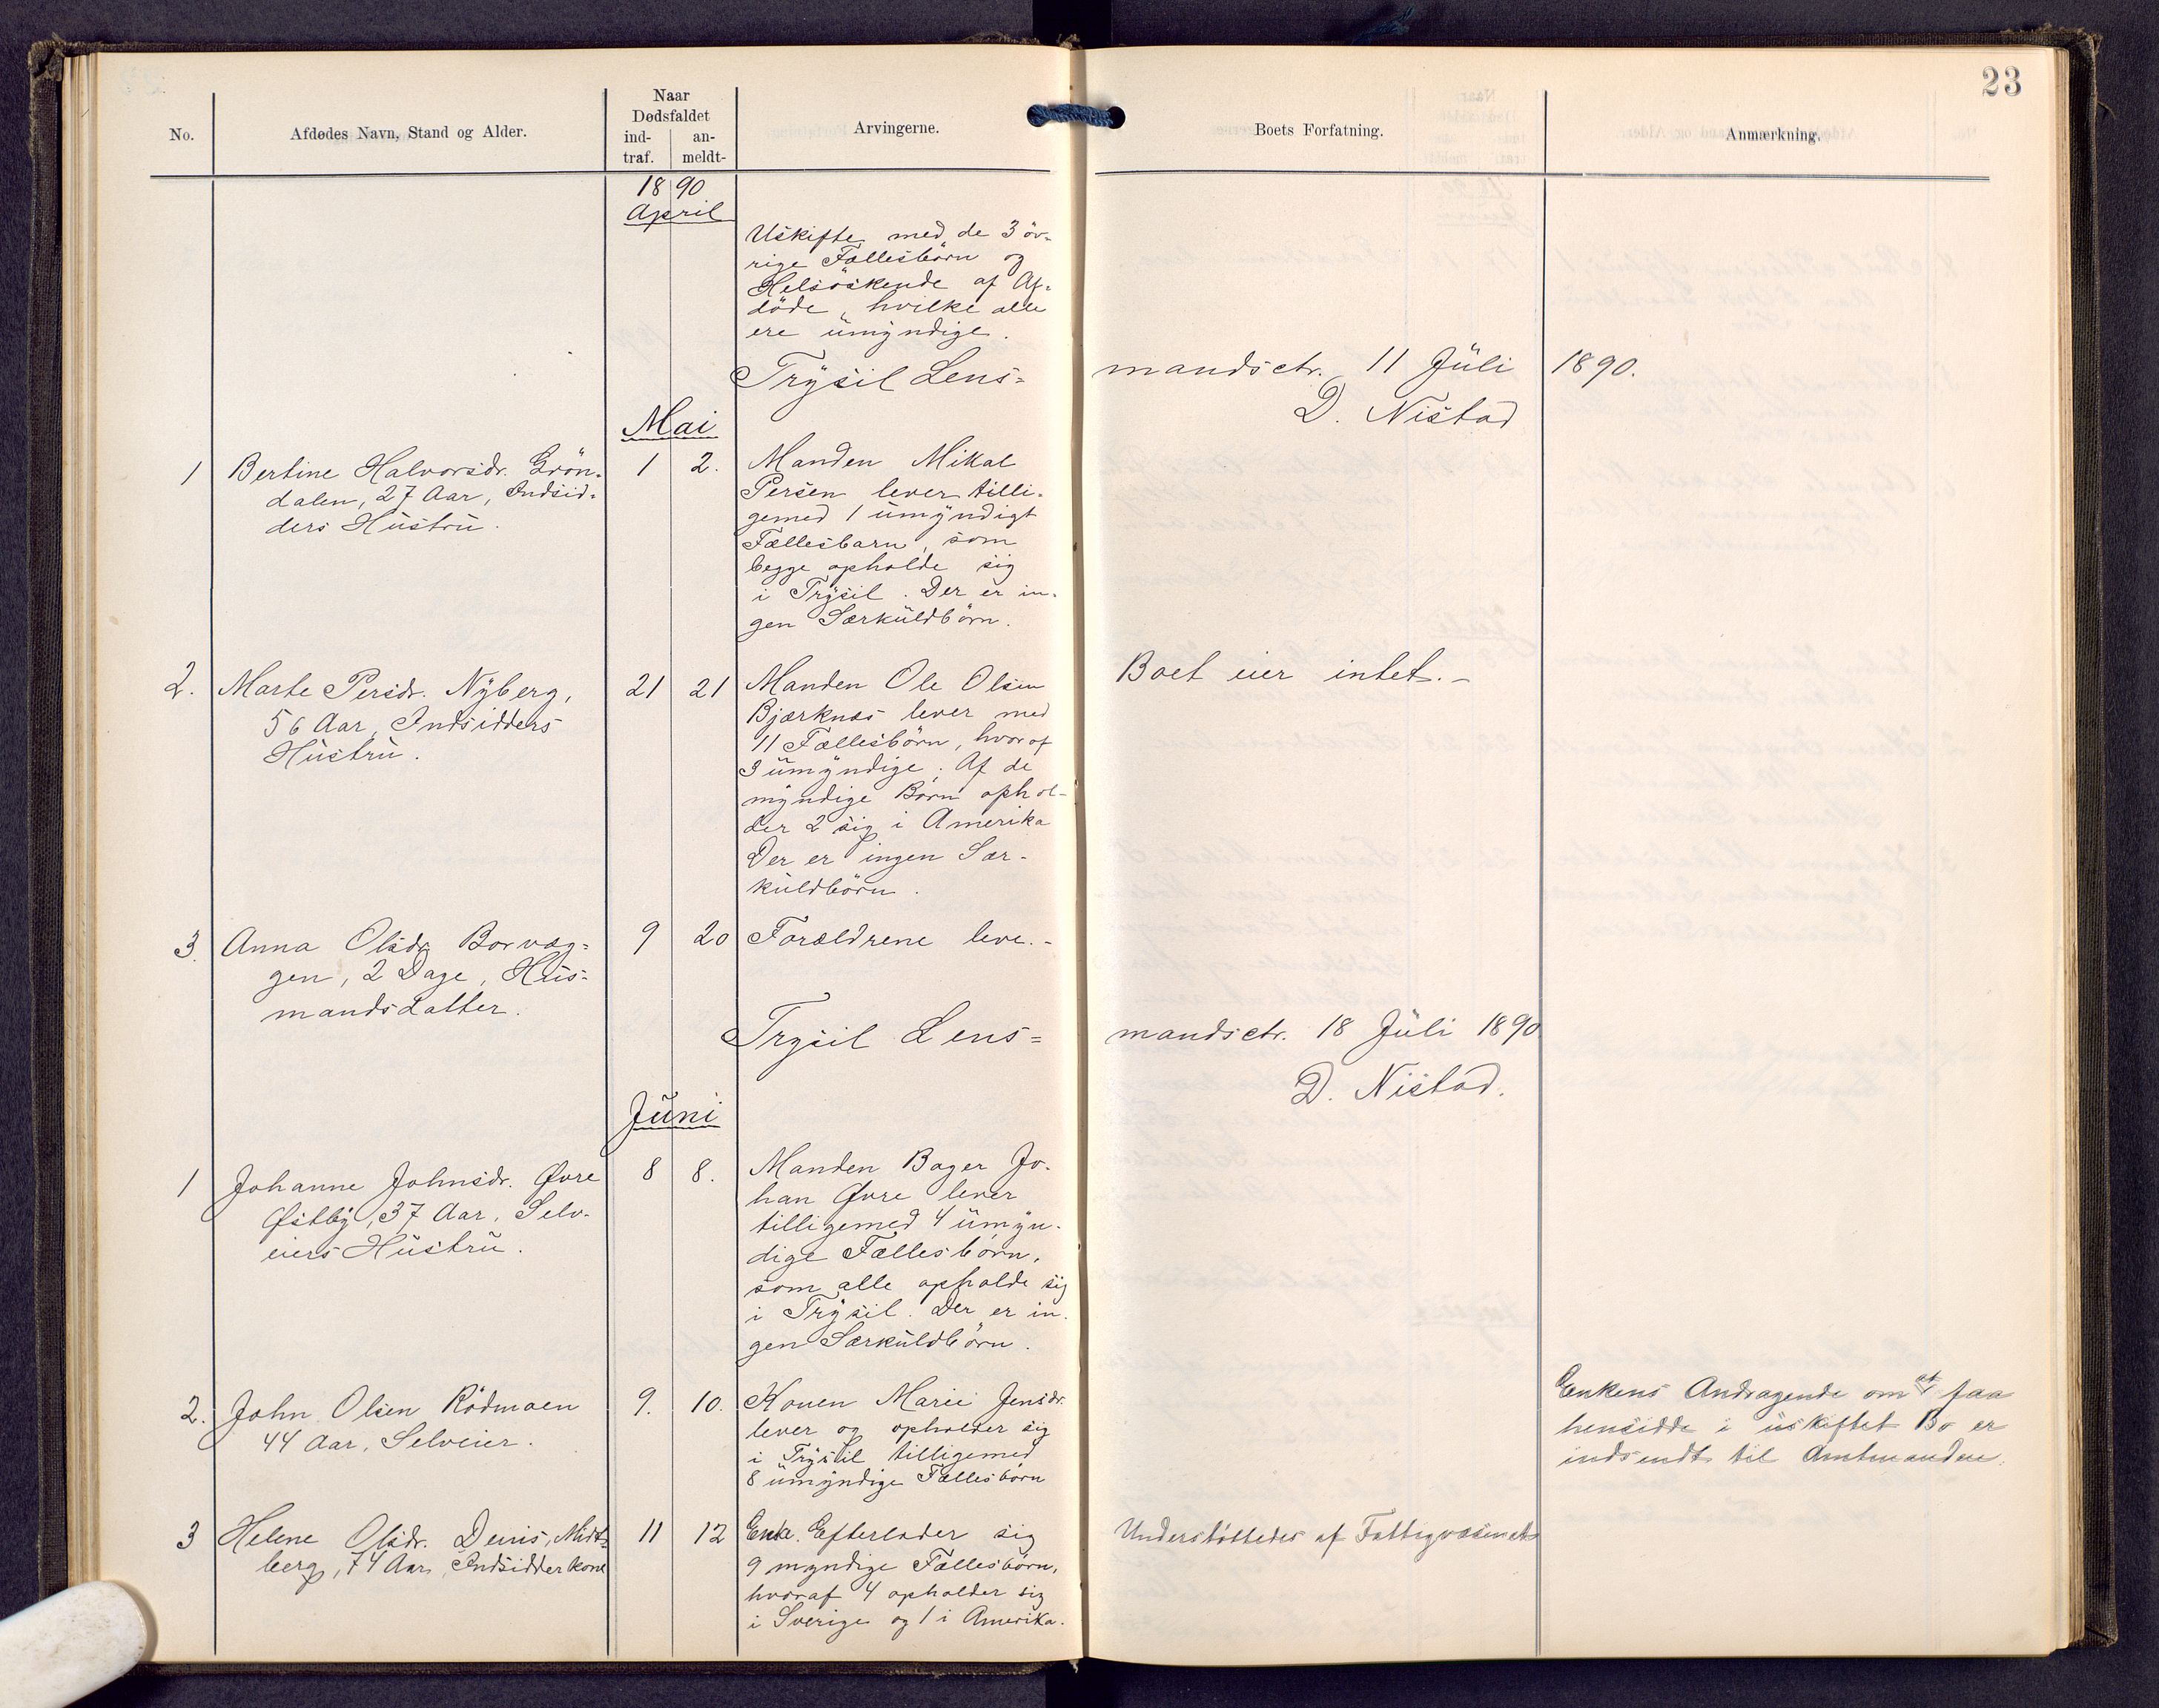 23
No.
Afdødes Navn, Stand og Alder.
Naar
Dødsfaldet
ind-
traf.
an-
meldt-
Arvingerne.
Boets Forfatning.
Anmærkning.
1890
April
Uskifte med de 3 öv-
rige Fællesbörn og
Helsöskende af Af-
döde, hvilke alle
ere umyndige.
Trysil Lens-
mandsctr. 11 Juli 1890.
D. Nistad
Mai
1 Bertine Halvorsdr. Grön-
dalen, 27 Aar, Indsid-
ders Hustru.
1 2.
Manden Mikal
Persen lever tilli-
gemed 1 umyndigt
Fællesbarn, som
begge opholde sig
i Trysil. Der er in-
gen Særkuldbörn.
2. Marte Persdr. Nyberg,
56 Aar, Indsidders
Hustru.
21 21
Manden Ole Olsen
Bjærknæs lever med
11 Fællesbörn, hvoraf
3 umyndige. Af de
myndige Börn ophol-
der 2 sig i Amerika
Der er ingen Sær-
kuldbörn.
Boet eier intet.-
3. Anna Olsdr Borvæg-
gen, 2 Dage, Hus-
mandsdatter.
9 20
Forældrene leve.-
Trysil Lens-
mandsctr. 18 Juli 1890.
D. Nistad.
Juni
1 Johanne Johnsdr. Øvre
Østby, 37 Aar, Selv-
eiers Hustru.
8 8.
Manden Bager Jo-
han Øvre lever
tilligemed 4 umyn-
dige Fællesbörn,
som alle opholde sig
i Trysil. Der er in-
gen Særkuldbörn.
2. John Olsen Rödmoen
44 Aar, Selveier.
9. 10.
Konen Marie Jensdr.
lever og opholder sig
i Trysil tilligemed
8 umyndige Fællesbörn
Enkens Andragende om at faa
hensidde i uskiftet Bo er
indsendt til Amtmanden.
3 Helene Olsdr. Denis, Midt-
berg, 74 Aar, Indsidderkone
11 12
Enke. Efterlader sig
9 myndige Fællesbörn,
hvoraf 4 opholder sig
i Sverige og 1 i Amerika.
Understöttedes af Fattigvæsenet